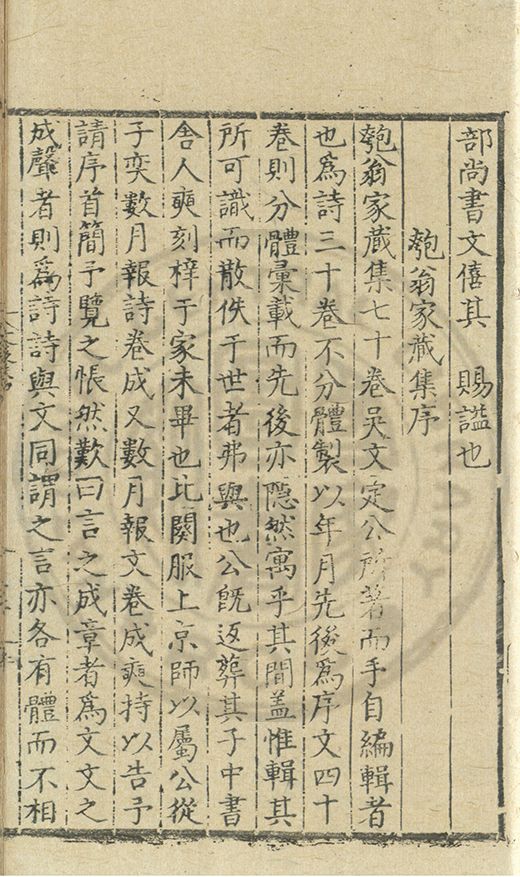 部尚書文僖其　賜諡也
匏翁家藏集序
匏翁家藏集七十卷吳文定公所著而手自編輯者
也爲詩三十卷不分體製以年月先後爲序文四十
卷則分體彙載而先後亦隱然寓乎其間盖惟輯其
所可識而散佚于世者弗與也公旣返葬其子中書
舍人奭刻梓于家未畢也比闋服上京師以屬公從
子奕數月報詩卷成又數月報文卷成奭持以告予
請序首簡予覽之悵然歎曰言之成章者爲文文之
成聲者則爲詩詩與文同謂之言亦各有體而不相